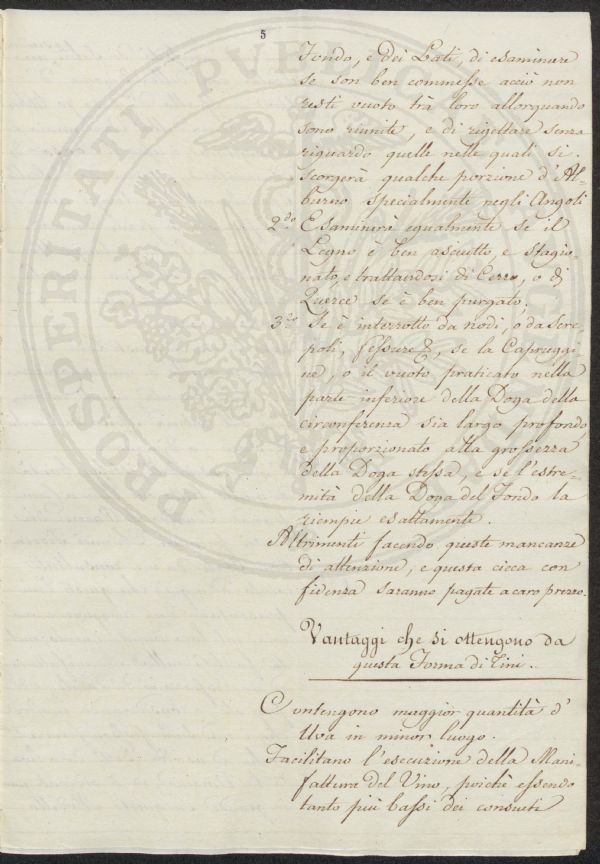 5
Fondo, e dei Lati, di esaminare
se son ben commesse acciò non
resti vuoto trà loro allorquando
sono riunite, e di rigettare senza
riguardo quelle nelle quali si
scorgerà qualche porzione d'Al-
burno specialmente negli Angoli
2do Esaminerà egualmente se il
Legno è ben asciutto, e stagio-
nato, e trattandosi di Cerro, o di
Querce se è ben purgato.
3zo Se è interrotto da nodi, o da Scre-
poli, fessure &, se la Capruggi
ne, o il vuoto praticato nella
parte inferiore della Doga della
circonferenza sia largo profondo,
e proporzionato alla grossezza
della Doga stessa, e se l'estre-
mità della Doga del Fondo la
riempie esattamente.
Altrimenti facendo queste mancanze
di attenzione, e questa cieca con
fidenza saranno pagate a caro prezzo.
Vantaggi che si ottengono da
questa Forma di Tini.
Contengono maggior quantità d'
Uva in minor luogo.
Facilitano l'esecuzione della Mani-
fattura del Vino, poichè essendo
tanto più bassi dei consueti
PROSPERITATI PVBLICAE